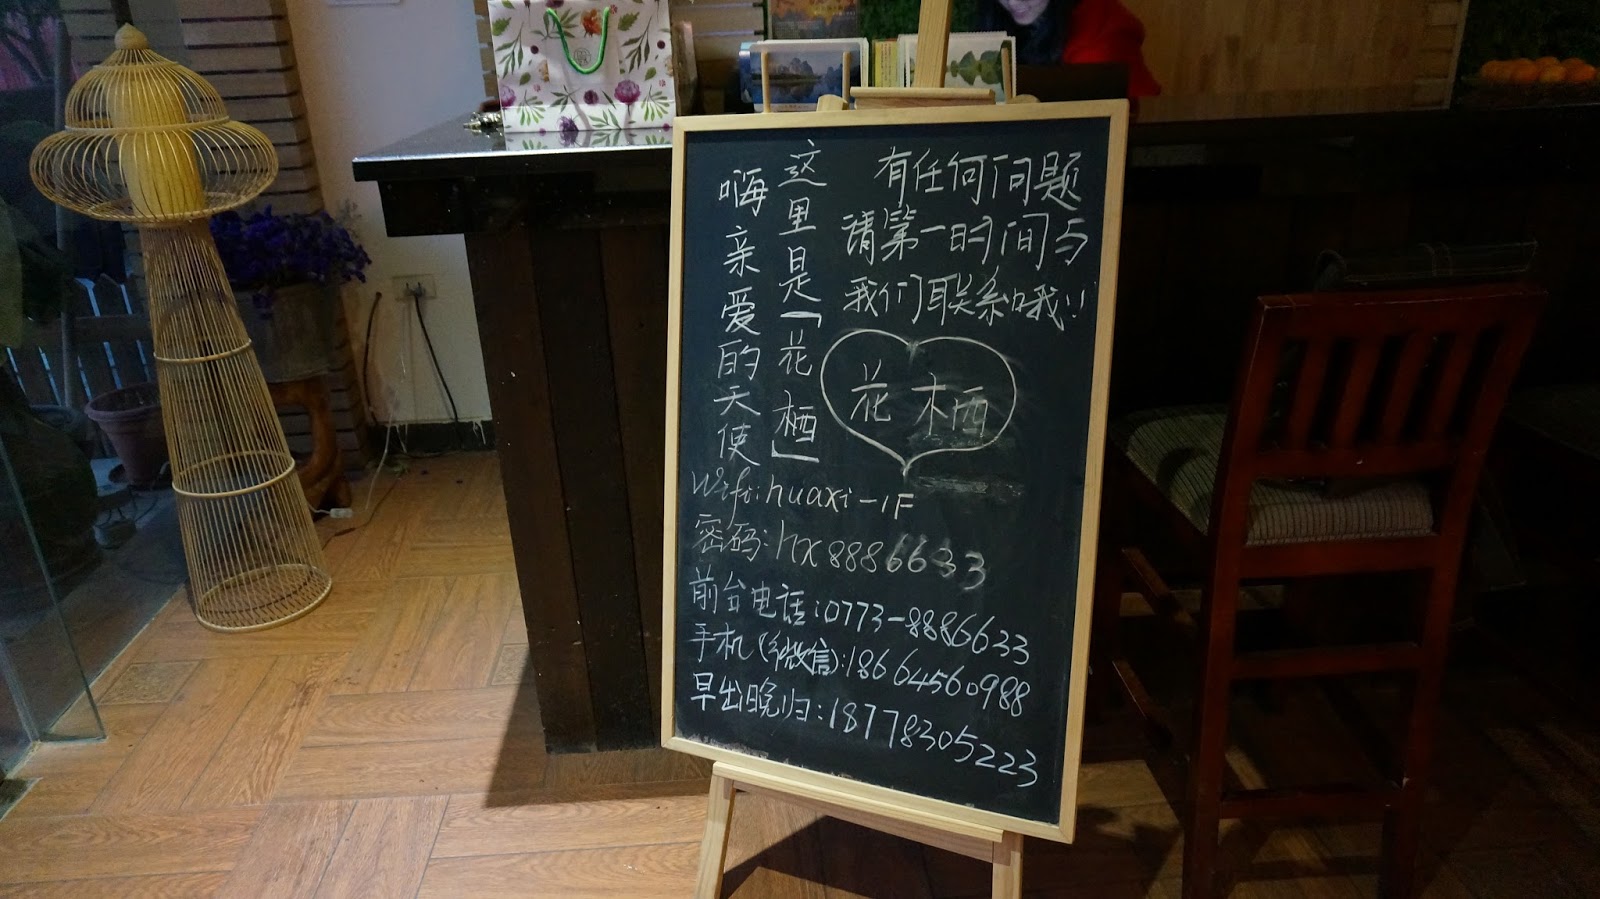 嗨亲爱的天使
这里是「花栖」
有任何问题
请第一时间与
我们联系哦!!
花栖
Wifi:huaxi-1F
密码:hx8886633
前台电话:0773-8886633
手机(微信):18664560988
早出晚归:18778305223